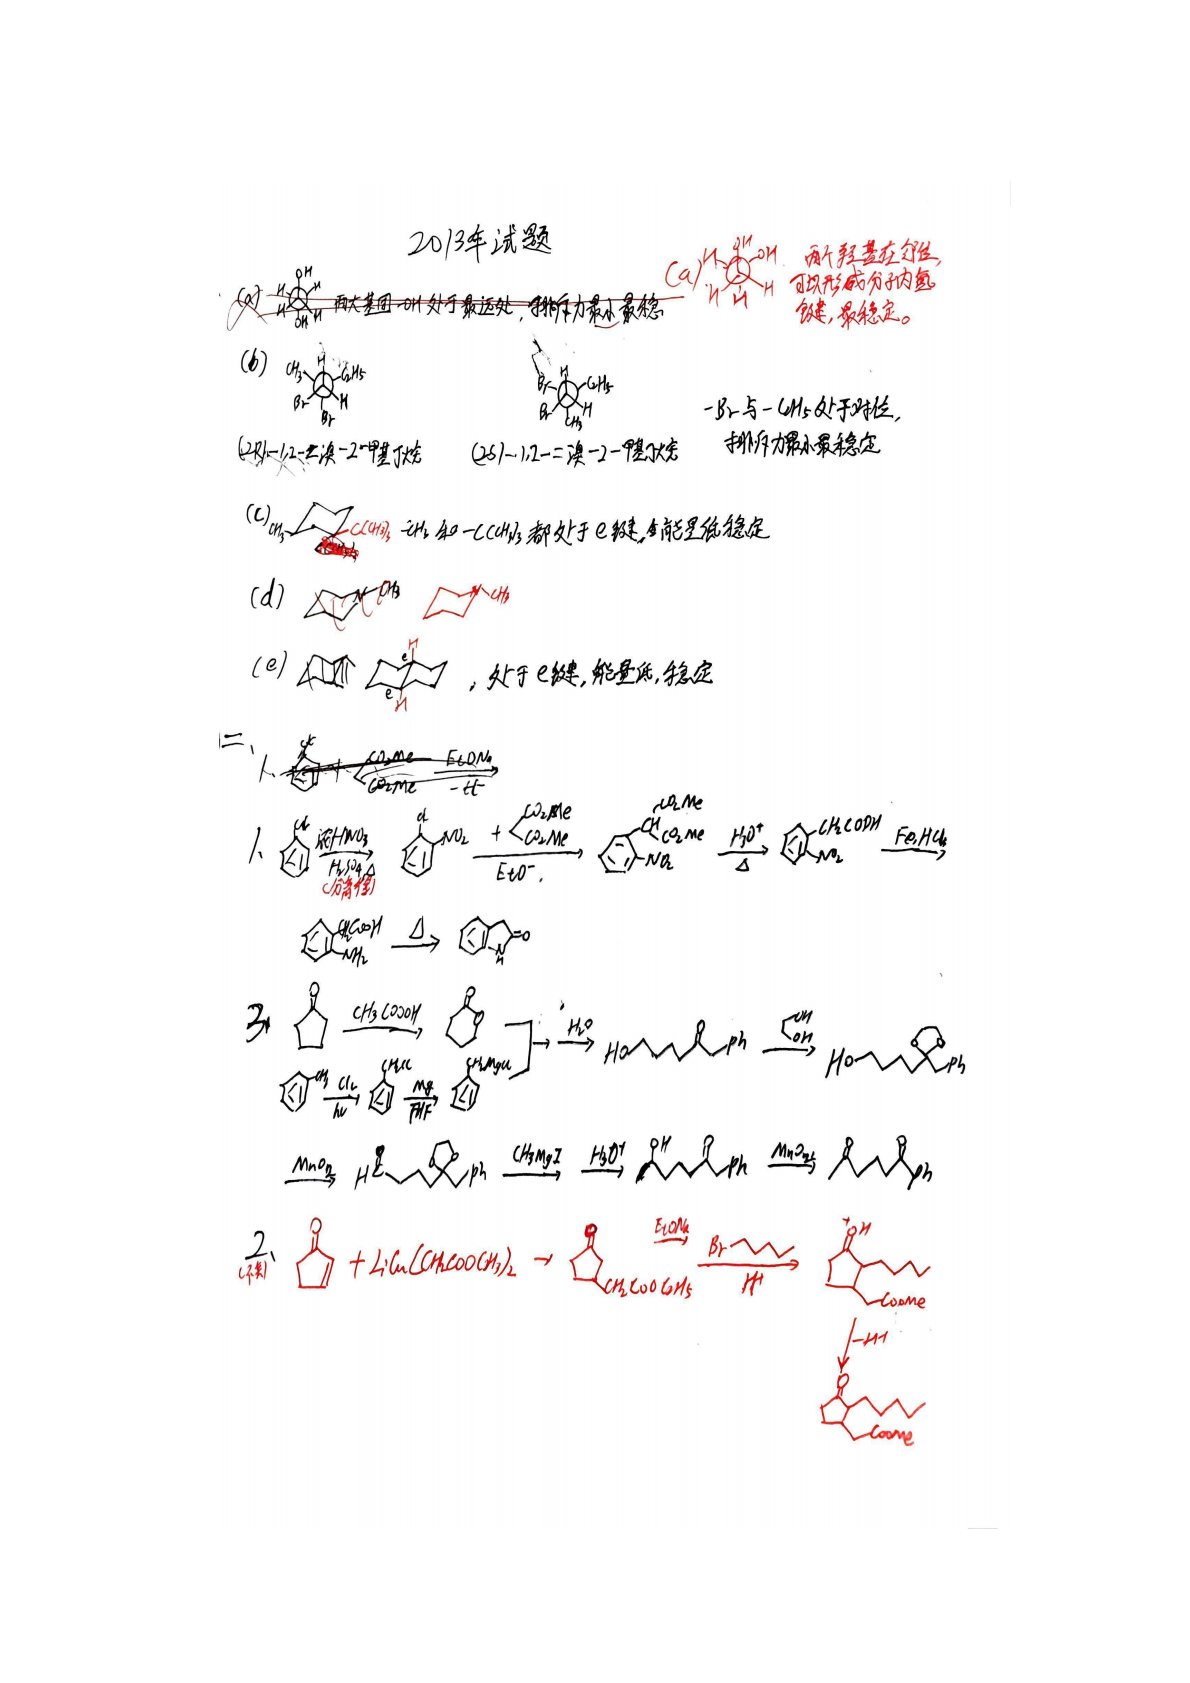 2013年试题
(a) 两大基团-OH处于最远处,排斥力最小最稳
(a) 两个羟基在邻位,
可以形成分子内氢
键,最稳定。
(b) CH3 H C2H5 Br Br H
Br H C2H5 Br CH3 H
-Br与-C2H5处于对位,
排斥力最小最稳定
(2R)-1,2-二溴-2-甲基丁烷 (2S)-1,2-二溴-2-甲基丁烷
(c) CH3 C(CH3)3 -CH3和-C(CH3)3都处于e键,能量低稳定
(d) N CH3 N CH3
(e) H e e H ,处于e键,能量低,稳定
二、
1. Cl + CO2Me CO2Me EtONa -H-
1. Cl 浓HNO3 H2SO4,△ (分离) Cl NO2 + CO2Me CO2Me EtO-. CH CO2Me CO2Me NO2 H3O+ △ CH2COOH NO2 Fe,HCl
CH2COOH NH2 △ N H =O
3. O CH3COOOH O O H2O HO O Ph OH OH HO O O Ph
CH3 Cl2 hν CH2Cl Mg THF CH2MgCl
MnO2 H O O O Ph CH3MgI H3O+ OH O Ph MnO2 O O Ph
2、 O + LiCu(CH2COOCH3)2 → O CH2COOC2H5 EtONa Br H+ +OH COOMe
-H+
O COOMe